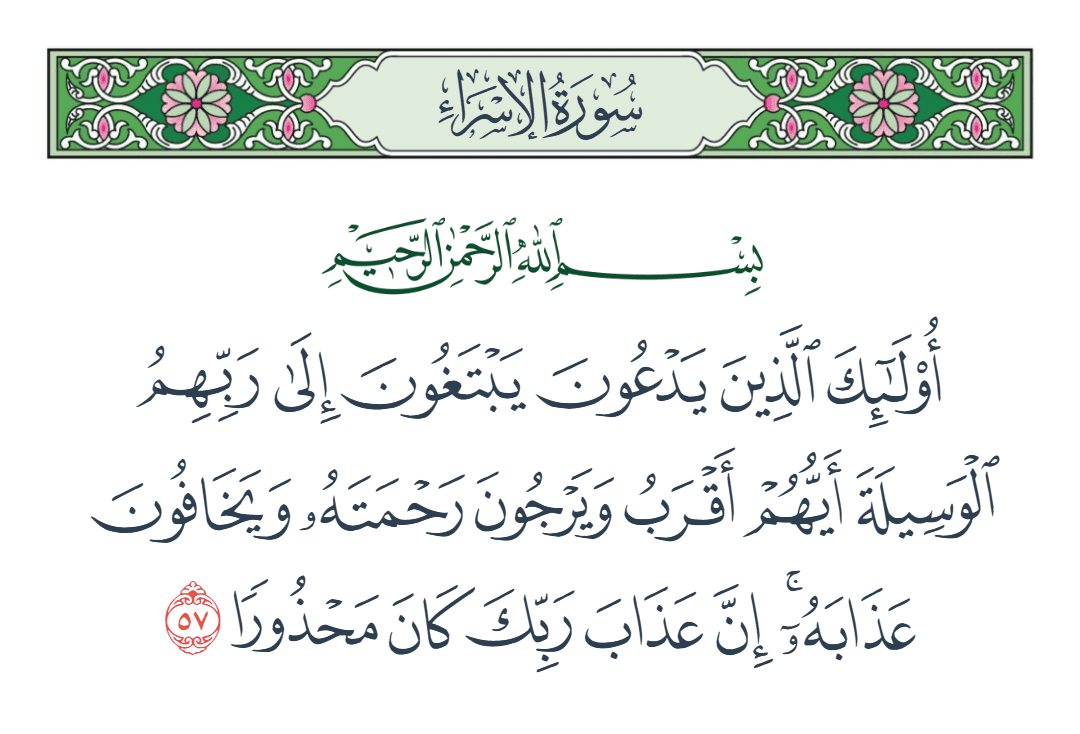 سُورَةُ الإِسْرَاءِ
بِسْمِ ٱللَّهِ ٱلرَّحْمَٰنِ ٱلرَّحِيمِ
أُوْلَٰٓئِكَ ٱلَّذِينَ يَدْعُونَ يَبْتَغُونَ إِلَىٰ رَبِّهِمُ
ٱلْوَسِيلَةَ أَيُّهُمْ أَقْرَبُ وَيَرْجُونَ رَحْمَتَهُۥ وَيَخَافُونَ
عَذَابَهُۥٓۚ إِنَّ عَذَابَ رَبِّكَ كَانَ مَحْذُورًا ٥٧